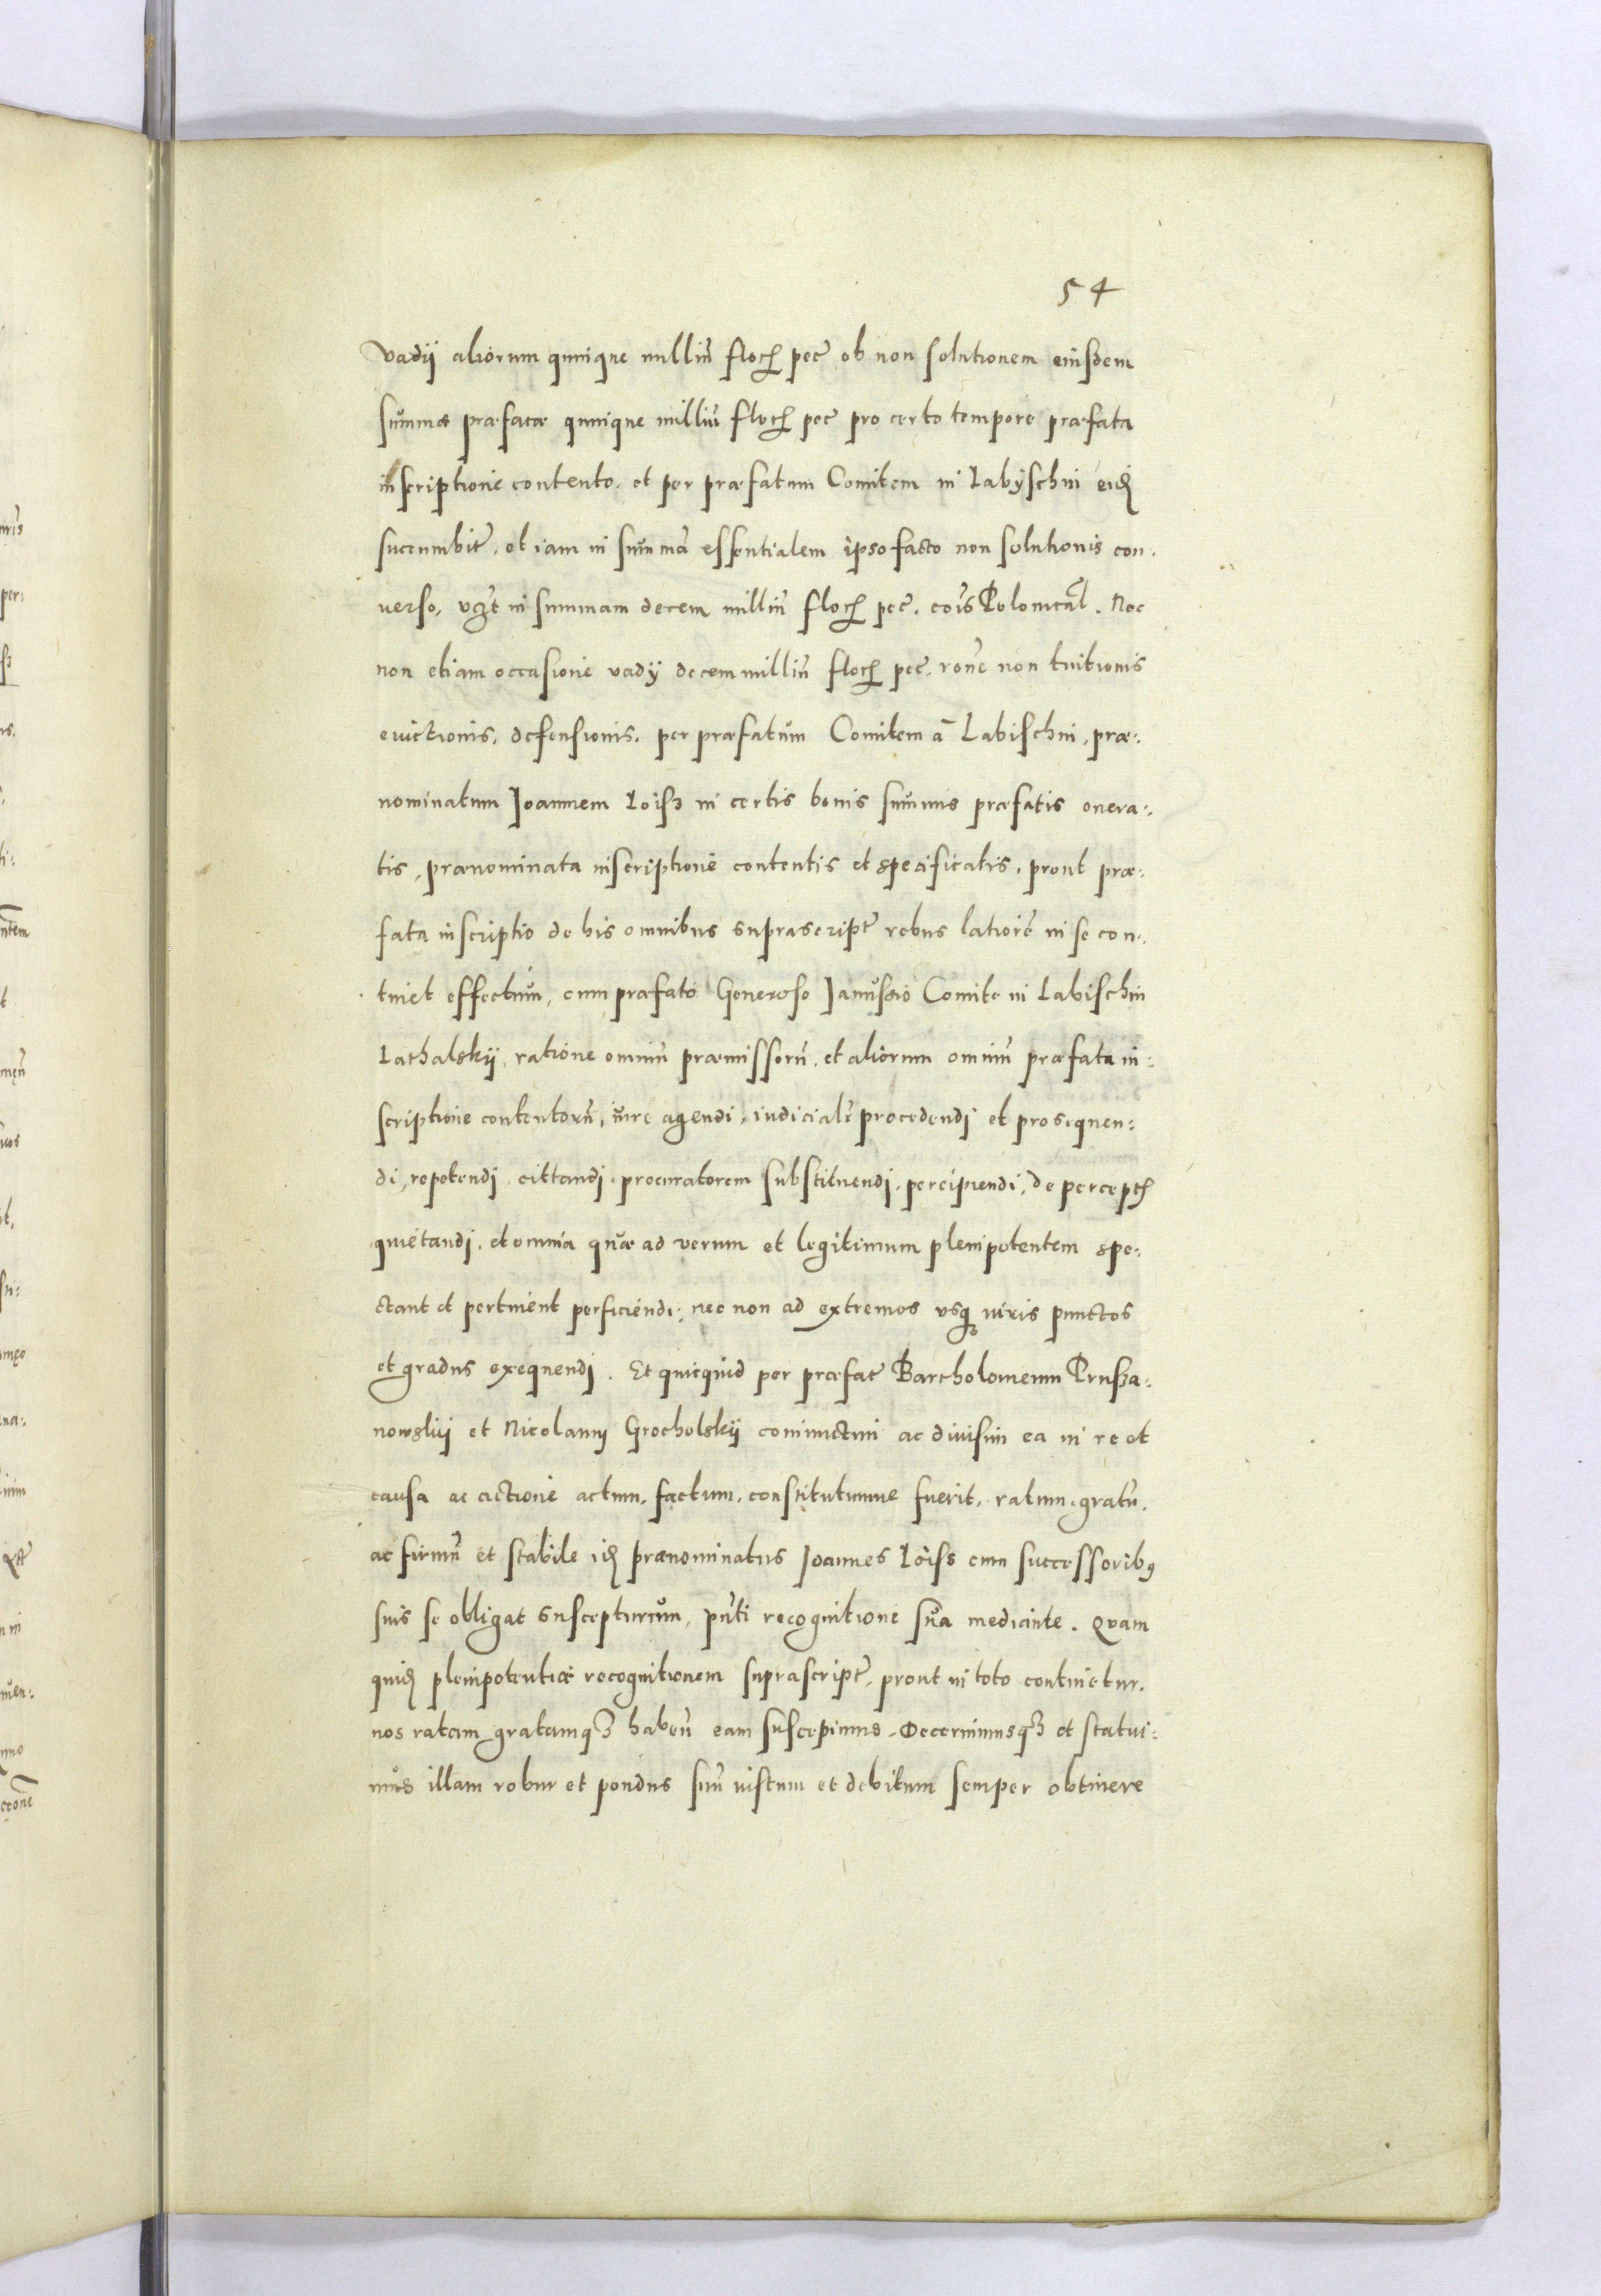 54
vadij aliorum quinque milliũ floꝝ pec̃ ob non solutionem eiusdem
summæ præfatæ quinque milliũ floꝝ pec̃ pro certo tempore præfata
inscriptione contento. et per præfatum Comitem in Labyschin eid
succumbit̃, et iam in summã essentialem ipso facto non solutionis con.
verso, vcz̃t in summam decem milliũ floꝝ pec̃. cõis Polonicaľ. Nec
non etiam occasione vadij decem milliũ floꝝ pec̃. rõne non tuitionis
evictionis, defensionis, per præfatum Comitem ã Labischin, præ:
nominatum Joannem Loisz in certis bonis summis præfatis onera:
tis, prænominata inscriptione contentis et specificatis, prout præ:
fata inscriptio de his omnibus suprascript̃ rebus latiorẽ in se con:
tinet effectum, cum præfato Generoso Janussio Comite in Labischin
Lathalskij, ratione omniũ præmissorũ, et aliorum omniũ præfata in:
scriptione contentorũ, iure agendi, iudicialr̃ procedendj et prosequen:
di, repetendj, cittandj, procuratorem substituendj, percipiendi, de perceptꝭ
quietandj, et omnia quæ ad verum et legitimum plenipotentem spe:
ctant et pertinent perficiendi; nec non ad extremos vsqꝫ iuris punctos
et gradus exequendj. Et quicquid per præfat̃ Bartholomeum Prusza:
nowskij et Nicolaum Grocholskij coniunctim ac divisim ea in re et
causa ac actione actum, factum, constitutumue fuerit, ratum, gratũ,
ac firmũ et stabile id prænominatus Joannes Loiss cum successoribꝯ
suis se obligat suscepturum, pñti recognitione sua mediante. Quam
quid plenipotentiæ recognitionem suprascript̃, prout in toto continetur,
nos ratam gratamqꝫ habeñ eam suscepimus. Decernimusqꝫ et statui:
mus illam robur et pondus suũ iustum et debitum semper obtinere